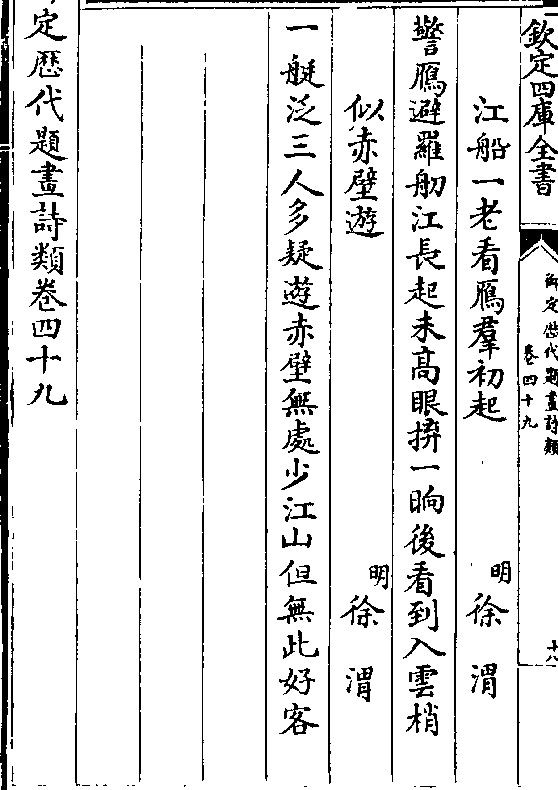 欽定四庫全書
御定歴代題畫詩類
卷四十九
十八
江船一老看鴈羣初起
明
徐渭
警鴈避羅舠江長起未高眼拚一晌後看到入雲梢
似赤壁遊
明
徐渭
一艇泛三人多疑遊赤壁無處少江山但無此好客
定歴代題畫詩類卷四十九